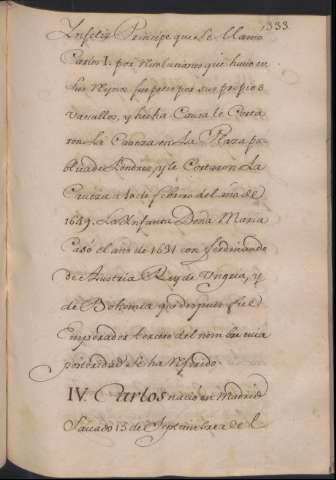 1333.
Infeliz Principe que se llamó
Carlos I. por revoluciones que huvo en
sus Reynos fue preso por sus propios
Vasallos, y hecha Causa le Corta
ron la Caveza en la Plaza pu
blica de Londres, y le Cortaron La
Caveza a 10 de febrero del año de
1649. La Infanta Doña Maria
Casó el año de 1631 con ferdinando
de Austria Rey de Ungria, y
de Bohemia que despues fue
Emperador tercero del nombre cuia
posteridad se ha referido.
IV. Carlos nació en Madrid
Savado 15 de Septiembre de l